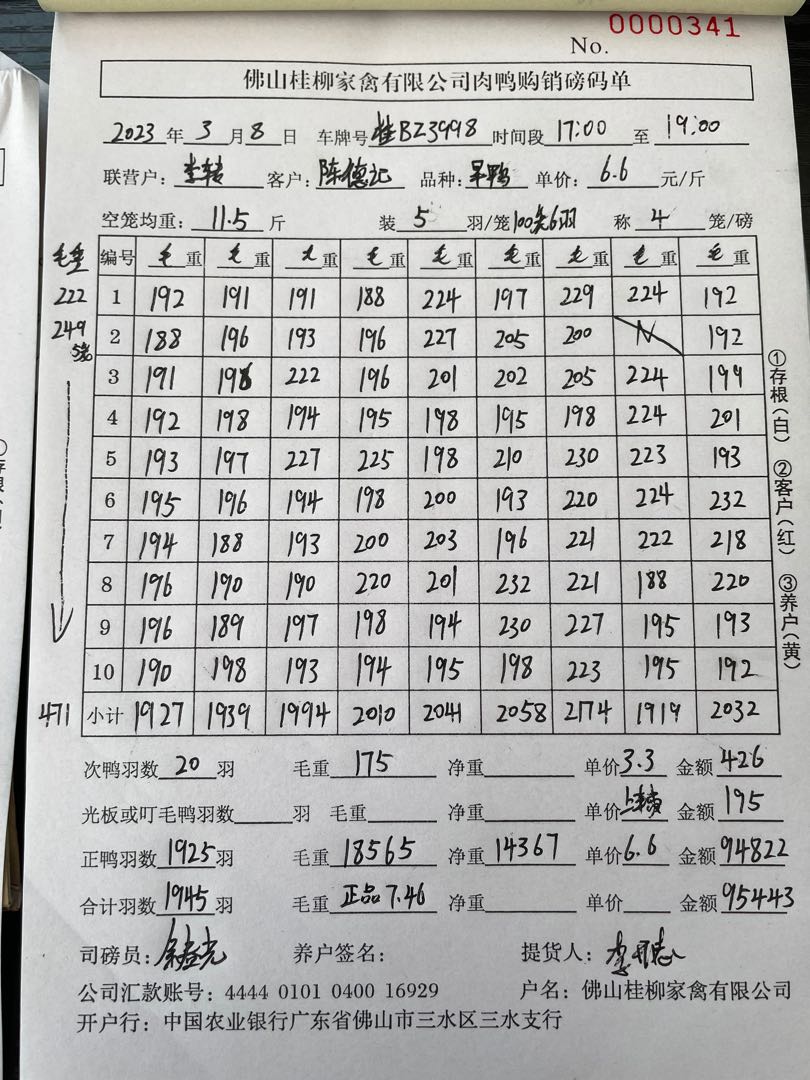 No. 0000341
佛山桂柳家禽有限公司肉鸭购销磅码单
2023 年 3 月 8 日 车牌号 桂BZ3998 时间段 17:00 至 19:00
联营户: 李转 客户: 陈德记 品种: 旱鸭 单价: 6.6 元/斤
空笼均重: 11.5 斤 装 5 羽/笼 称 4 笼/磅
毛重 编号 毛重 毛重 毛重 毛重 毛重 毛重 毛重 毛重 毛重
222 1 192 191 191 188 224 197 229 224 192
249 2 188 196 193 196 227 205 200 192
3 191 198 222 196 201 202 205 224 199
4 192 198 194 195 198 195 198 224 201
5 193 197 227 225 198 210 230 223 193
6 195 196 194 198 200 193 220 224 232
7 194 188 193 200 203 196 221 222 218
8 196 190 190 220 201 232 221 188 220
9 196 189 197 198 194 230 227 195 193
10 190 198 193 194 195 198 223 195 192
471 小计 1927 1939 1994 2010 2041 2058 2174 1919 2032
次鸭羽数 20 羽 毛重 175 净重 单价 3.3 金额 426
光板或叮毛鸭羽数 羽 毛重 净重 单价 金额 195
正鸭羽数 1925 羽 毛重 18565 净重 14367 单价 6.6 金额 94822
合计羽数 1945 羽 毛重 正品7.46 净重 单价 金额 95443
司磅员: 养户签名: 提货人:
公司汇款账号: 4444 0101 0400 16929 户名: 佛山桂柳家禽有限公司
开户行: 中国农业银行广东省佛山市三水区三水支行
①存根(白) ②客户(红) ③养户(黄)